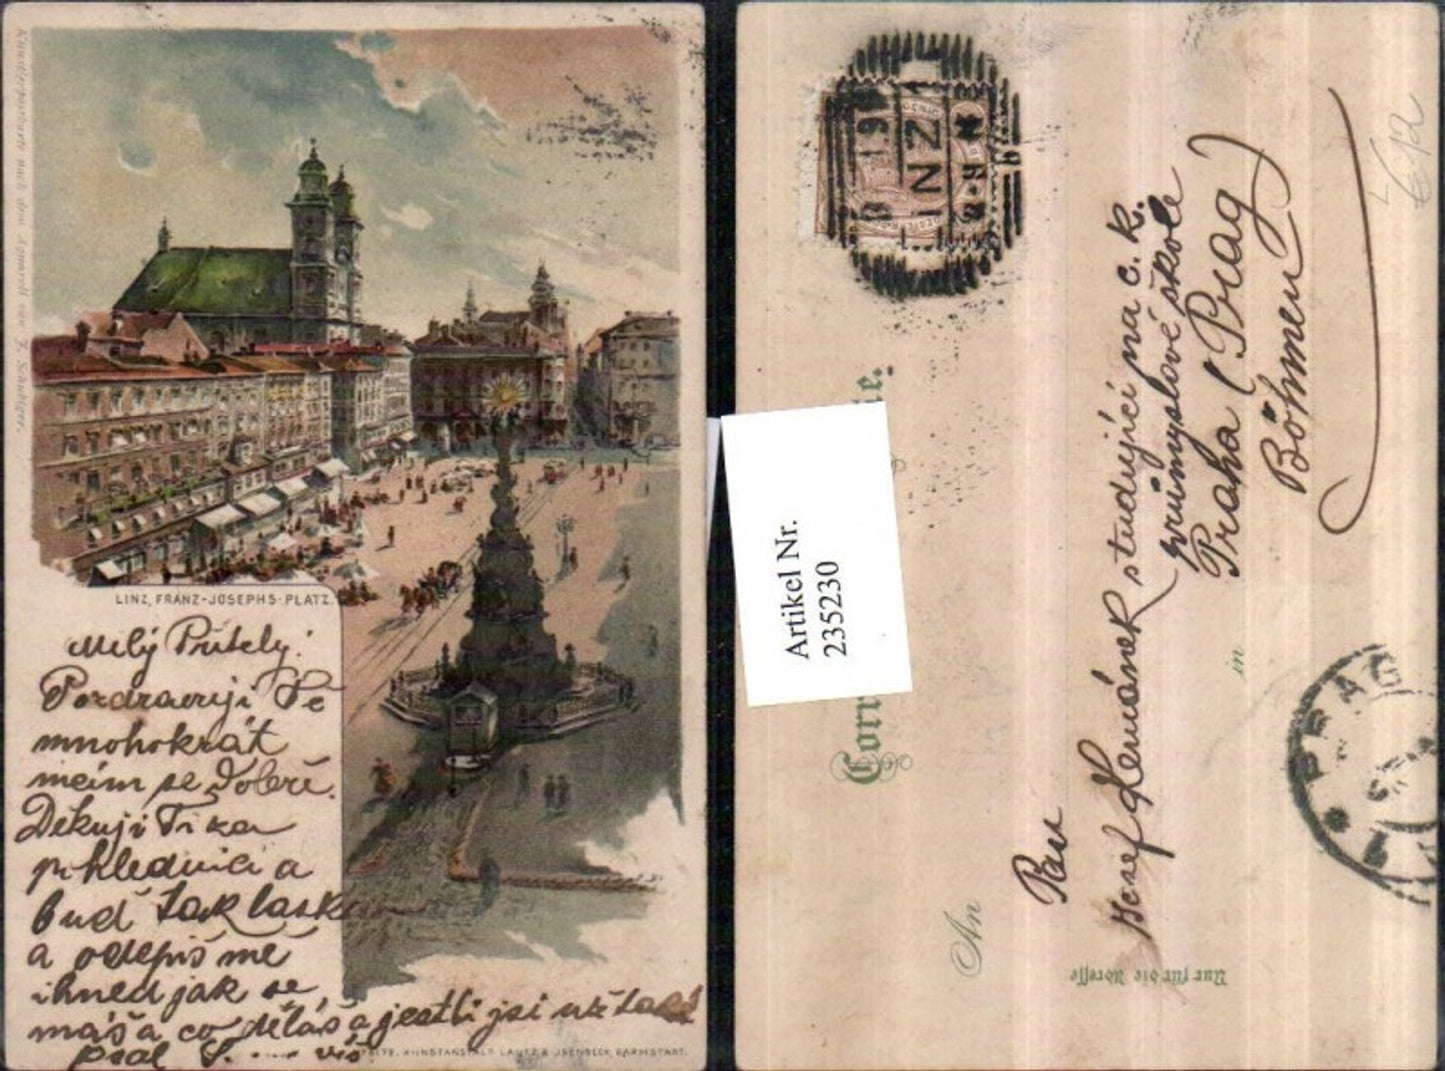 Künstlerpostkarte nach dem Aquarell von
LINZ, FRANZ-JOSEPHS-PLATZ.
Milý Příteli!
Pozdravuji Tě
mnohokrát
mcím se dobře.
Děkuji Ti za
phlednici a
buď tak laskav
a odepiš mě
ihned jak se
máš a co děláš a jestli jsi už také
psal
KUNSTANSTALT LAUTZ & ISENBECK, DARMSTADT.
LINZ 1
Artikel Nr.
235230
An
Pan
Josef Heřmánek studující na c. k.
průmyslové škole
in
Praha (Prag)
Böhmen
Nur für die Adresse
PRAG